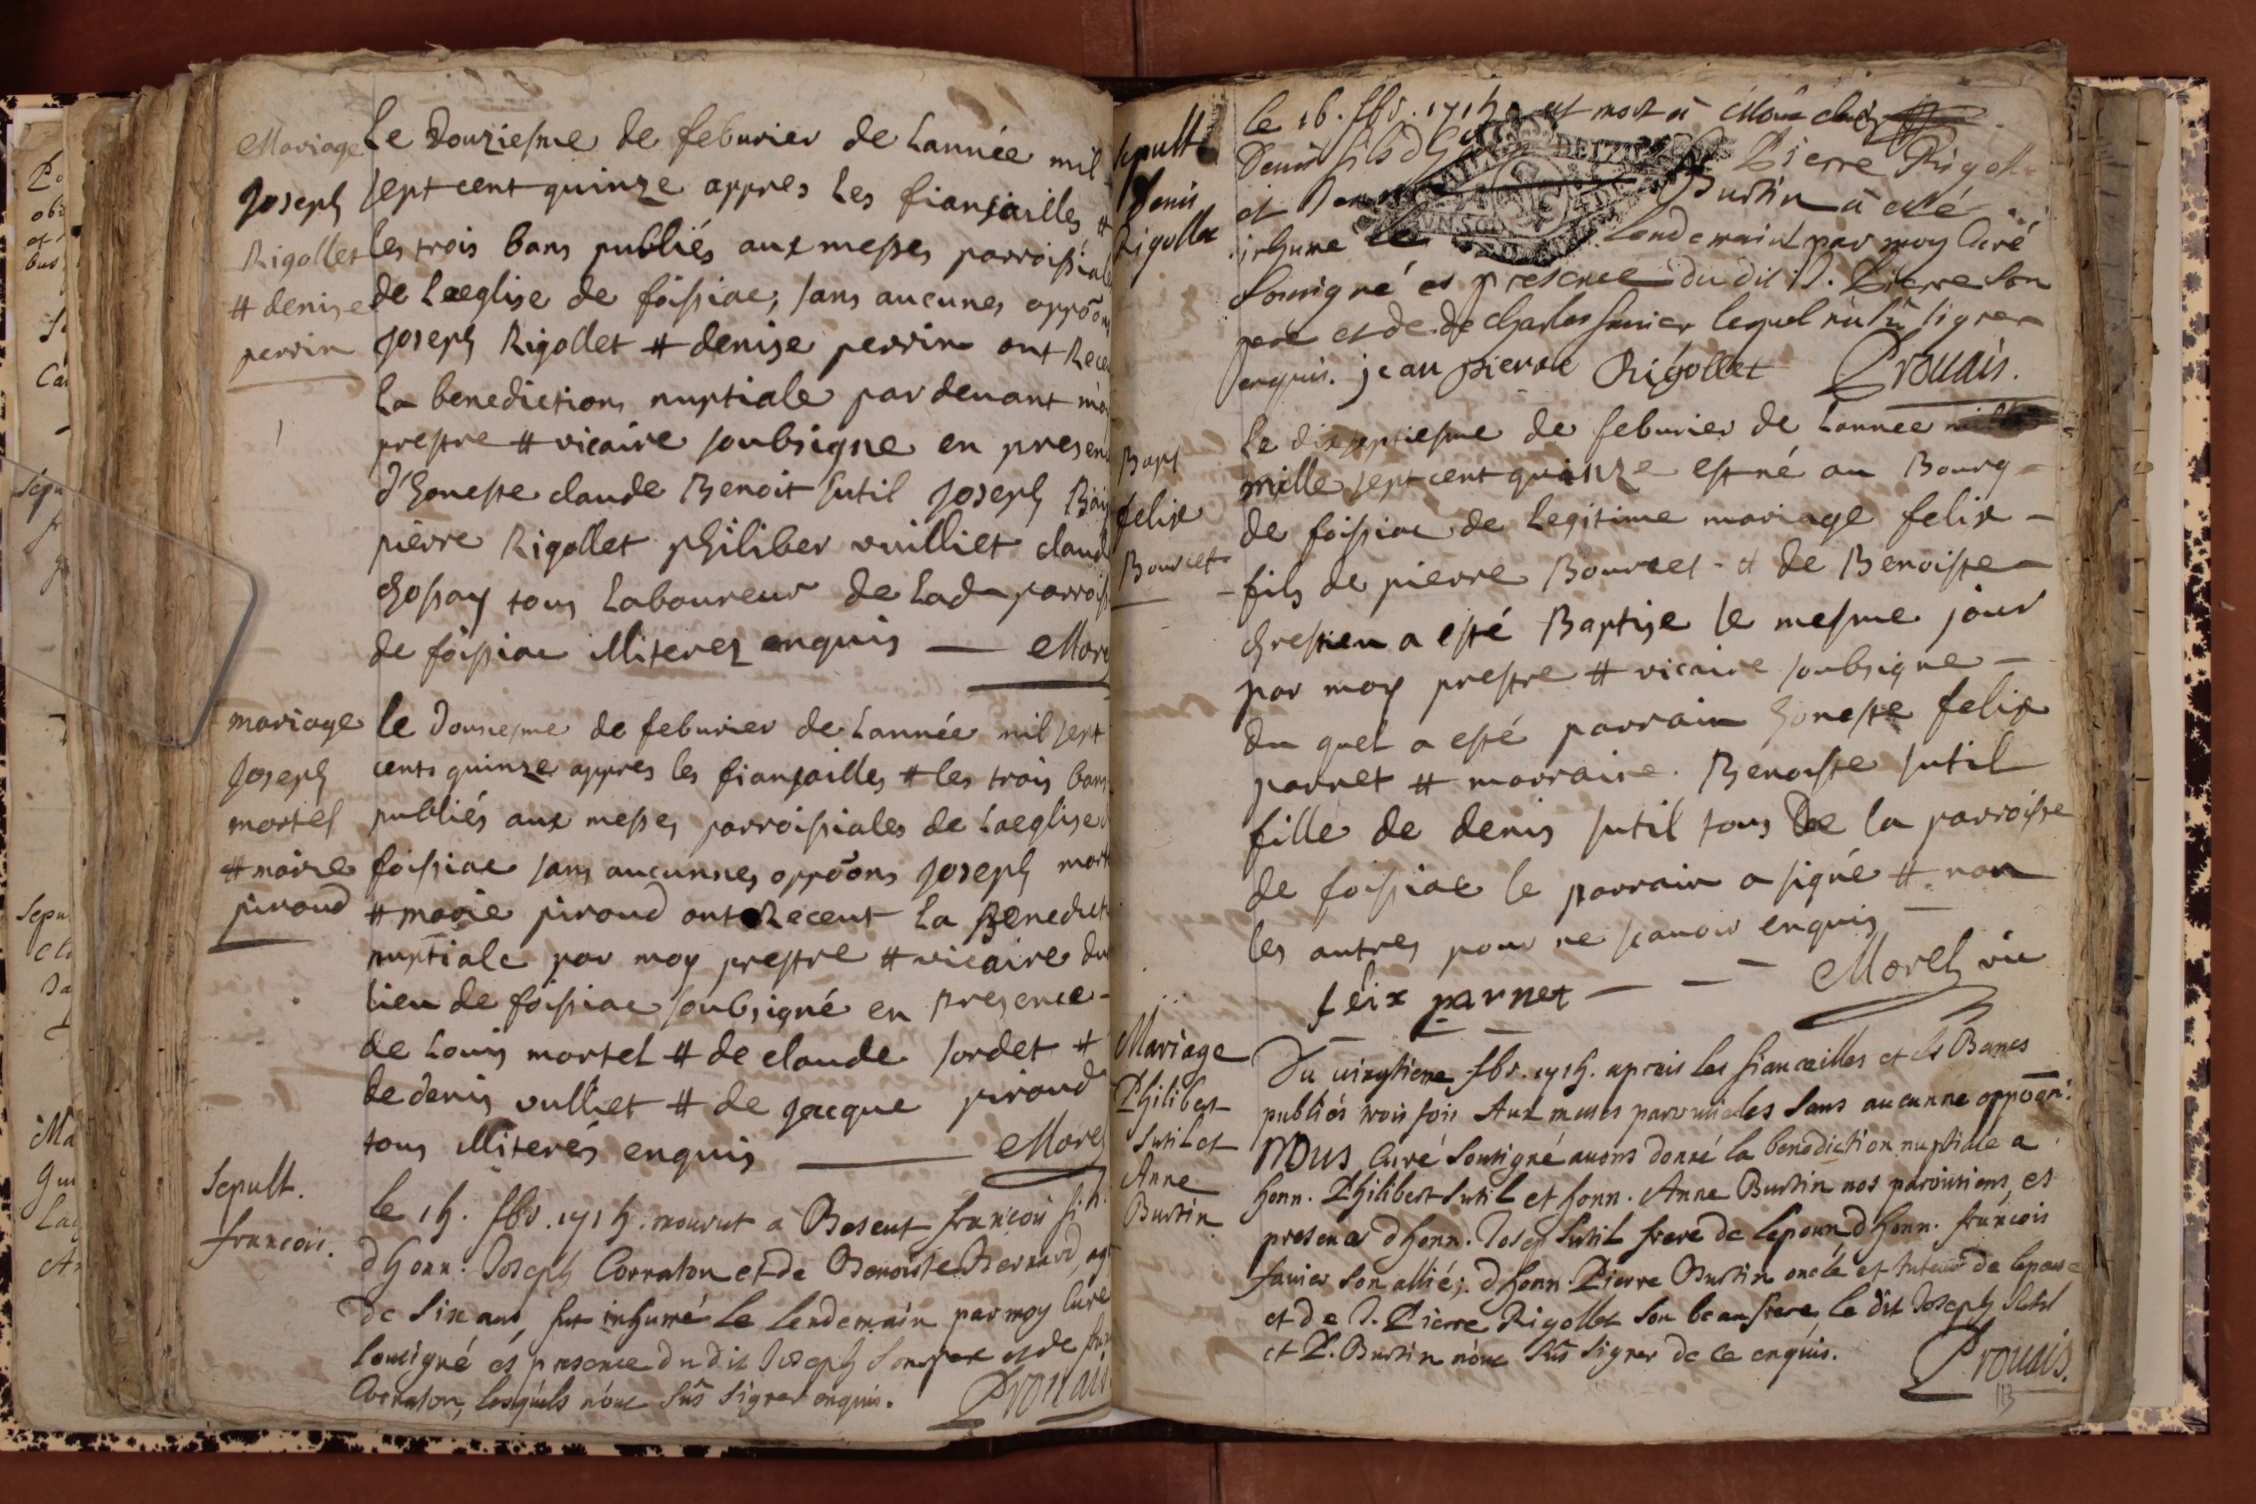 Mariage
Joseph
Rigollet
# denise
perrin
Le Douziesme de feburier de Lannée mil
sept cent quinze appres Les fiansailles #
les trois bans publiés aux messes parroissial
de Laeglise de foissiac, sans aucunes oppõons
Joseph Rigollet # denise perrin ont Rece
La benediction nuptiale pardevant moy
prestre # vicaire soubsigne en presen
d'honeste claude Benoit sutil Joseph
pierre Rigollet philiber vuilliet claud
chossay tous Laboureur de Lad. parroiss
de foissiac illiterez enquis — Morel
mariage
Joseph
mortel
# marie
piroud
le Dousiesme de feburier de Lannée mil sept
cents quinze appres les fiansailles # les trois bans
publiés aux messes parroissiales de Laeglise
foissiac sans aucunnes oppõons Joseph mort
# marie piroud ont Receut La Benedict
nuptiale par moy prestre # vicaire du
lieu de foissiac soubsigné en presence
de Louis mortel # de claude sordet #
de denis vulliet # de Jacque piroud
tous illiterés enquis — Morel
Sepult.
francois.
le 15. fbr. 1715. mourut a Beseut francois fils
d'honn. Joseph Corraton et de Benoiste Bernard, ag
de Six ans, fut inhumé Le Lendemain par moy Curé
Sousigné es presence du dit Joseph Son pere et de
Corraton, Lesquels n'ont Sũs Signer enquis. Prouais
sepult
Denis
Rigollet
le 16. fbr. 1715. est mort a
Denis fils d' Pierre Rigollet
et Burtin a esté
inhume le Lendemain par moy Curé
Sousigné es presence du dit S. Pierre Son
pere et de de Charles favier lequel n'a Sũ signer
enquis. jean pierre Rigollet Prouais.
Bapt
felix
Bourcet
Le dixseptiesme de feburier de Lannee
mille sept cent quinze est né au Bourg
de foissiac de Legitime mariage felix —
fils de pierre Bourcet # de Benoiste —
chrestien a esté Baptise le mesme jour
par moy prestre # vicaire soubsigne —
du quel a esté parrain honeste felix
parnet # marraine Benoiste sutil
fille de denis sutil tous De la parroisse
de foissiac le parrain a signé # non
les autres pour ne scavoir enquis —
féix parnet — — Morel vic
Mariage
Philibert
Sutil et
Anne
Burtin
Du vingtieme fbr. 1715. aprais les fiancailles et les Banes
publiés trois fois Aux messes parroissiales Sans aucunne oppõon.
Nous Curé Sousigné avons donné la benediction nuptialle a
honn. Philibert Sutil et honn. Anne Burtin nos paroissiens, es
presence d'honn. Josep Sutil frere de lepoux, d'honn. francois
favier Son allié; d'honn. Pierre Burtin oncle et tuteur de lepouse
et de S. Pierre Rigollet Son beaufrere, le dit Joseph Sutil
et P. Burtin n'ont Sũs Signer de ce enquis. Prouais.
113